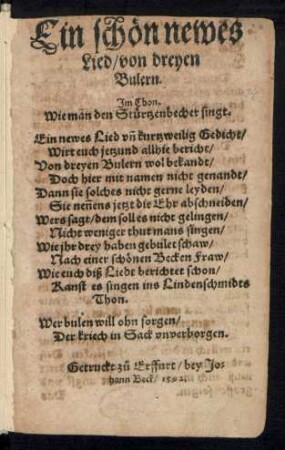 Ein schön newes
Lied/von dreyen
Bulern.
Im Thon.
Wie man den Stürtzenbecher singt.
Ein newes Lied vñ kurtzweilig Gedicht/
Wirt euch jetzund allhie bericht/
Von dreyen Bulern wol bekandt/
Doch hier mit namen nicht genandt/
Dann sie solches nicht gerne leyden/
Sie neñens jetzt die Ehr abschneiden/
Wers sagt/dem soll es nicht gelingen/
Nicht weniger thut mans singen/
Wie jhr drey haben gebulet schaw/
Nach einer schönen Becken Fraw/
Wie euch diß Liedt berichtet schon/
Kanst es singen ins Lindenschmidts
Thon.
Wer bulen will ohn sorgen/
Der kriech in Sack unverborgen.
Getruckt zů Erffurt/bey Jo-
hann Beck/